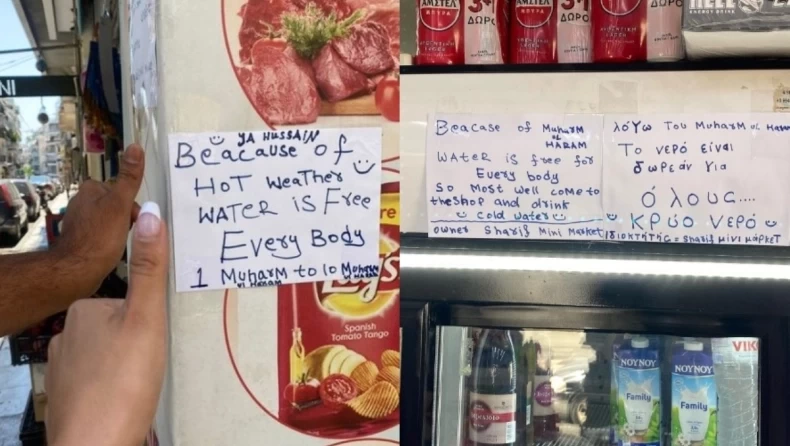 NI
YA HUSSAIN
Beacause of
HoT weaTher
WATER is Free
Every Body
1 MuharM to 10 Moharam
ul HaRaM
ul HARAM
Lay's
Spanish
Tomato Tango
ΑΜΣΤΕΛ
3+1
ΔΩΡΟ
ΑΜΣΤΕΛ
3+1
ΔΩΡΟ
HELL
ENERGY DRINK
Beacase of MuharM
UL
HARAM
WATER is free for
Every body
So Most well come to
the shop and drink
cold water
owner Sharif Mini Market
λόγω Του Muharm ul Haram
Το νερό είναι
δωρεάν για
όλους....
Κρύο νερό
ιδιοκτήτης = sharif μίνι μάρκετ
ΝΟΥΝΟΥ
Family
ΝΟΥΝΟΥ
Family
VIK